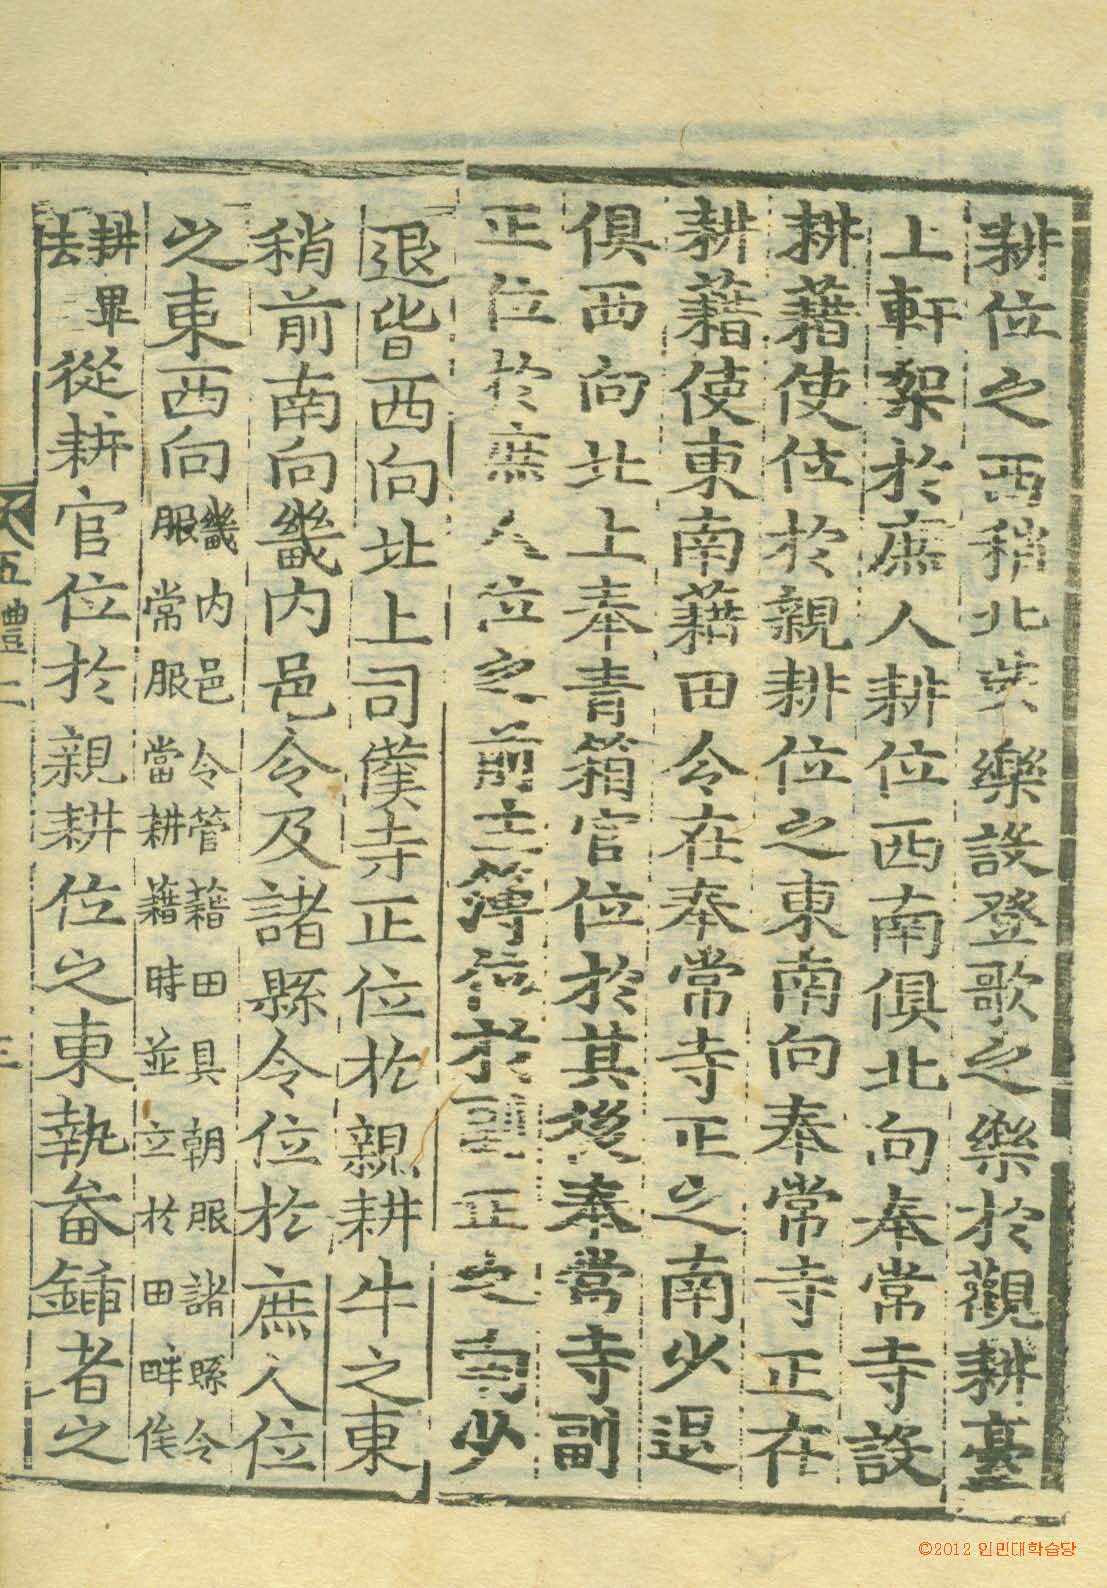 耕位之西稍北英樂設登歌之樂於觀耕臺
上軒架於庶人耕位西南俱北向奉常寺設
耕藉使位於親耕位之東南向奉常寺正在
耕藉使東南藉田令在奉常寺正之南少退
俱西向北上奉青箱官位於其後奉常寺副
正位於庶人位之前主簿位於副正之南少
退皆西向北上司僕寺正位於親耕牛之東
稍前南向畿內邑令及諸縣令位於庶人位
之東西向畿內邑令管藉田具朝服諸縣令
服常服當耕藉時並立於田畔俟
耕畢
去
從耕官位於親耕位之東執畚鍤者之
五禮二
三
©2012 인민대학습당